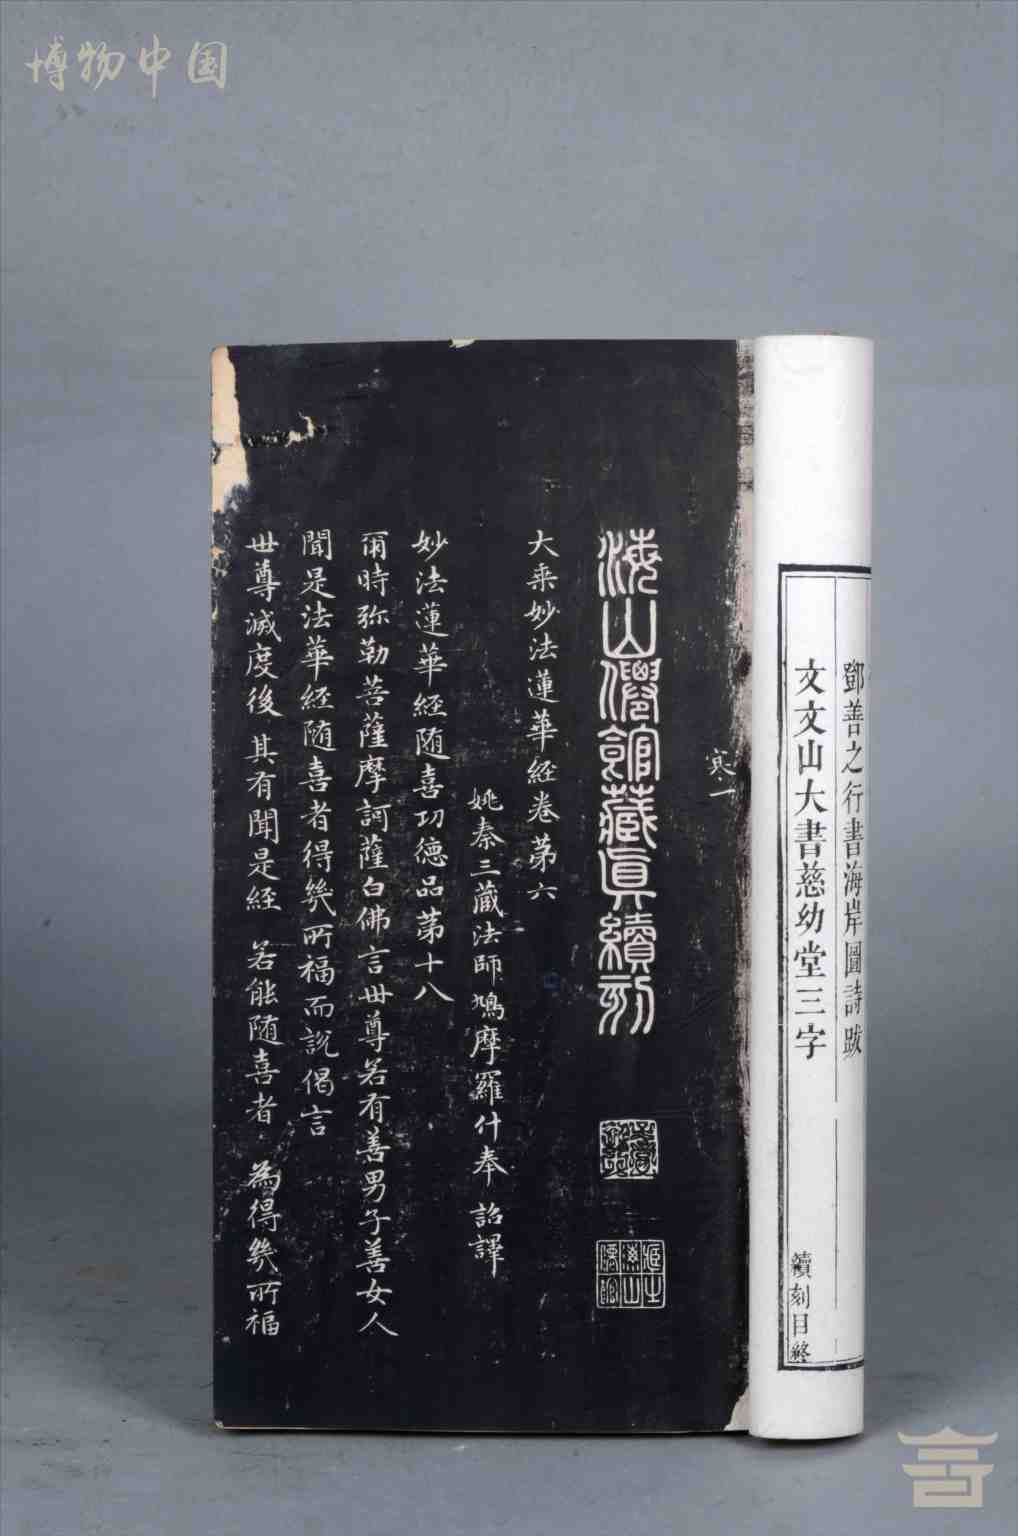 博物中国
鄧善之行書海岸圖詩跋
文文山大書慈幼堂三字
續刻目終
寒一
海山僊館藏真續刻
大乘妙法蓮華經卷第六
姚秦三藏法師鳩摩羅什奉 詔譯
妙法蓮華經随喜功德品第十八
爾時弥勒菩薩摩訶薩白佛言世尊若有善男子善女人
聞是法華經随喜者得幾所福而說偈言
世尊滅度後 其有聞是經 若能随喜者 為得幾所福